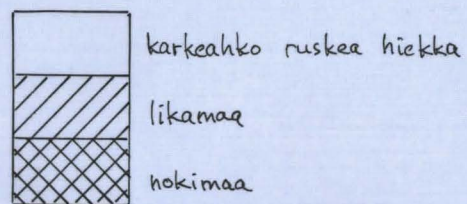 karkeahko ruskea hiekka
likamaa
nokimaa